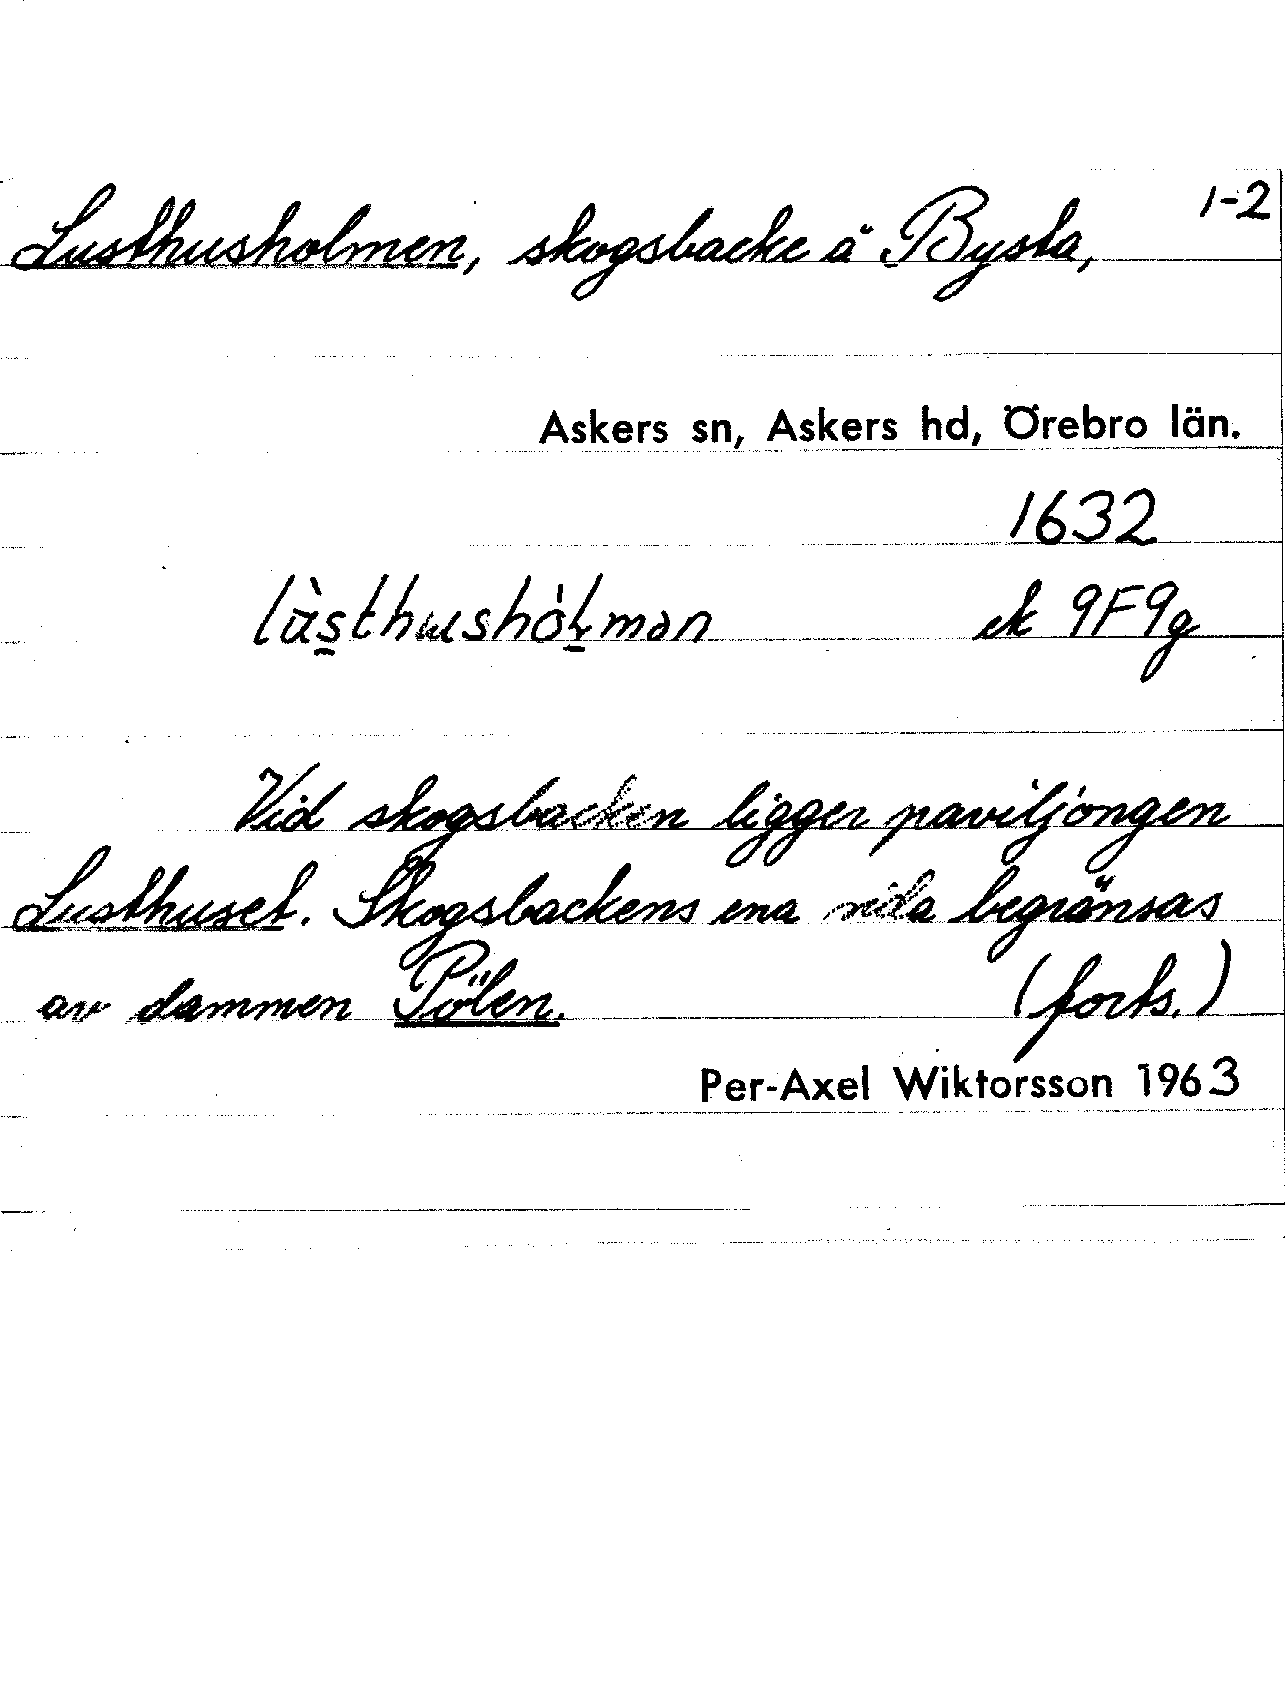 1-2
Lusthusholmen, skogsbacke å Bysta,
Askers sn, Askers hd, Örebro län.
1632
ek 9F9g
Vid skogsbacken ligger paviljongen
Lusthuset. Skogsbackens ena sida begränsas
av dammen Pölen. (forts.)
Per-Axel Wiktorsson 1963